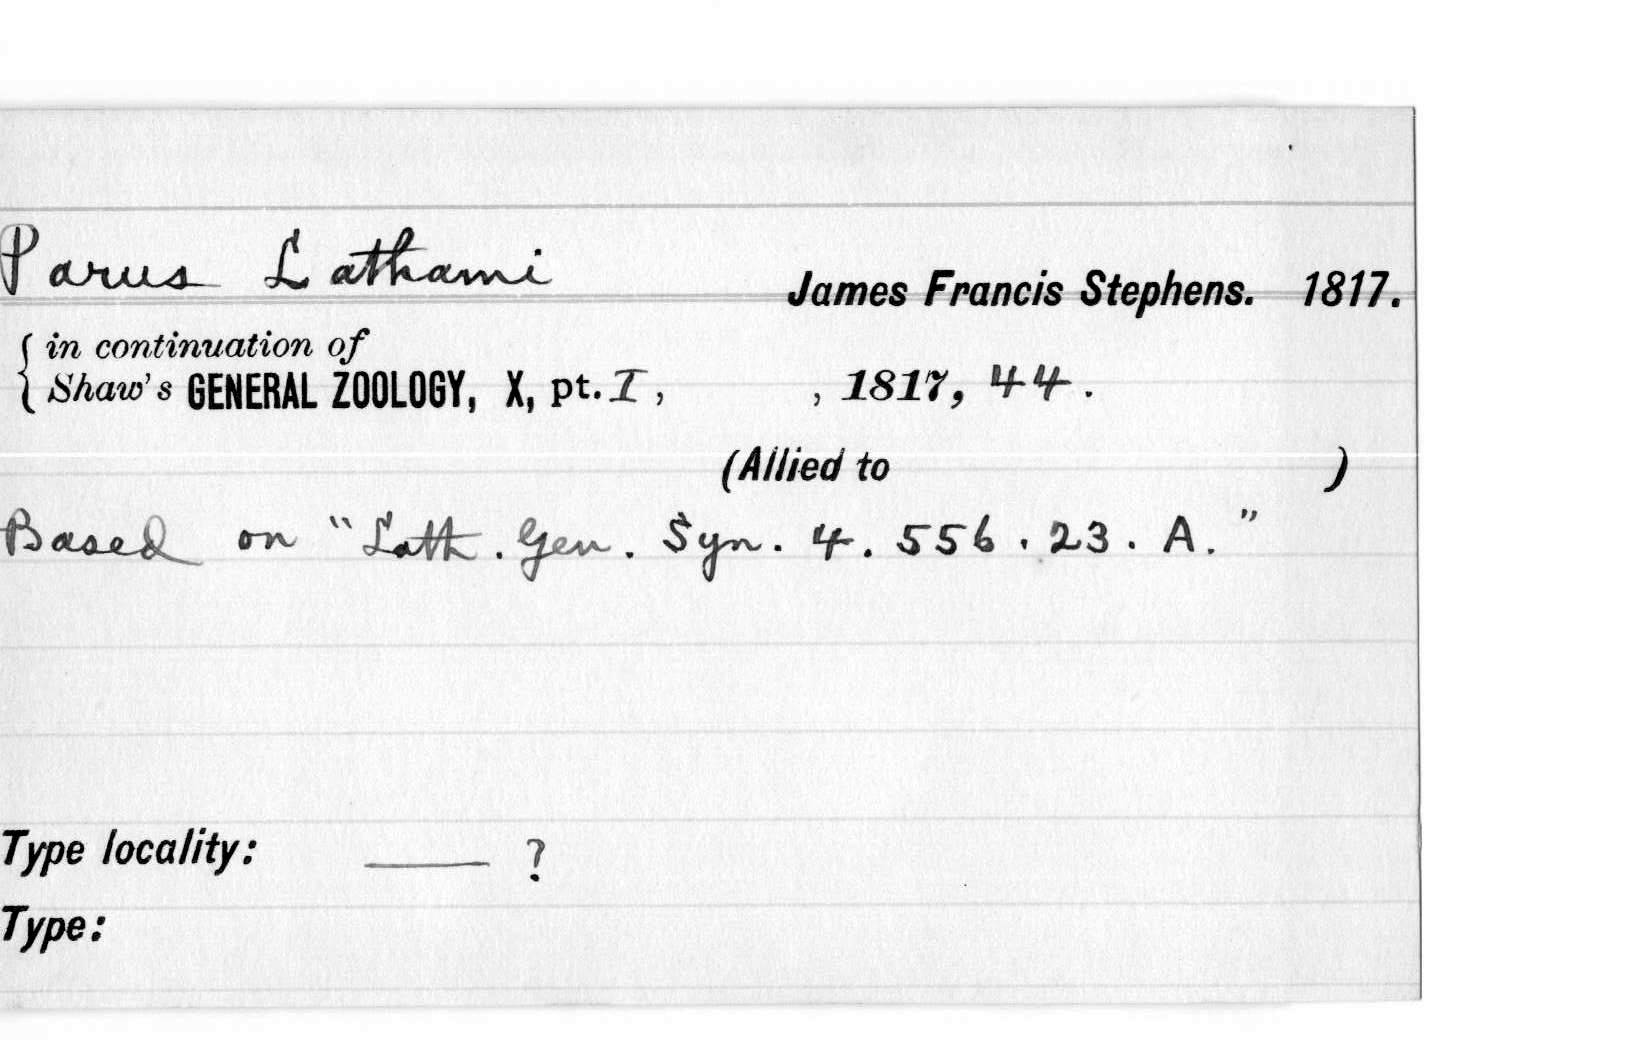 Parus Lathami
James Francis Stephens. 1817.
{ in continuation of
Shaw's GENERAL ZOOLOGY, X, pt. I, , 1817, 44.
(Allied to )
Based on "Lath. Gen. Syn. 4. 556. 23. A."
Type locality: —— ?
Type: